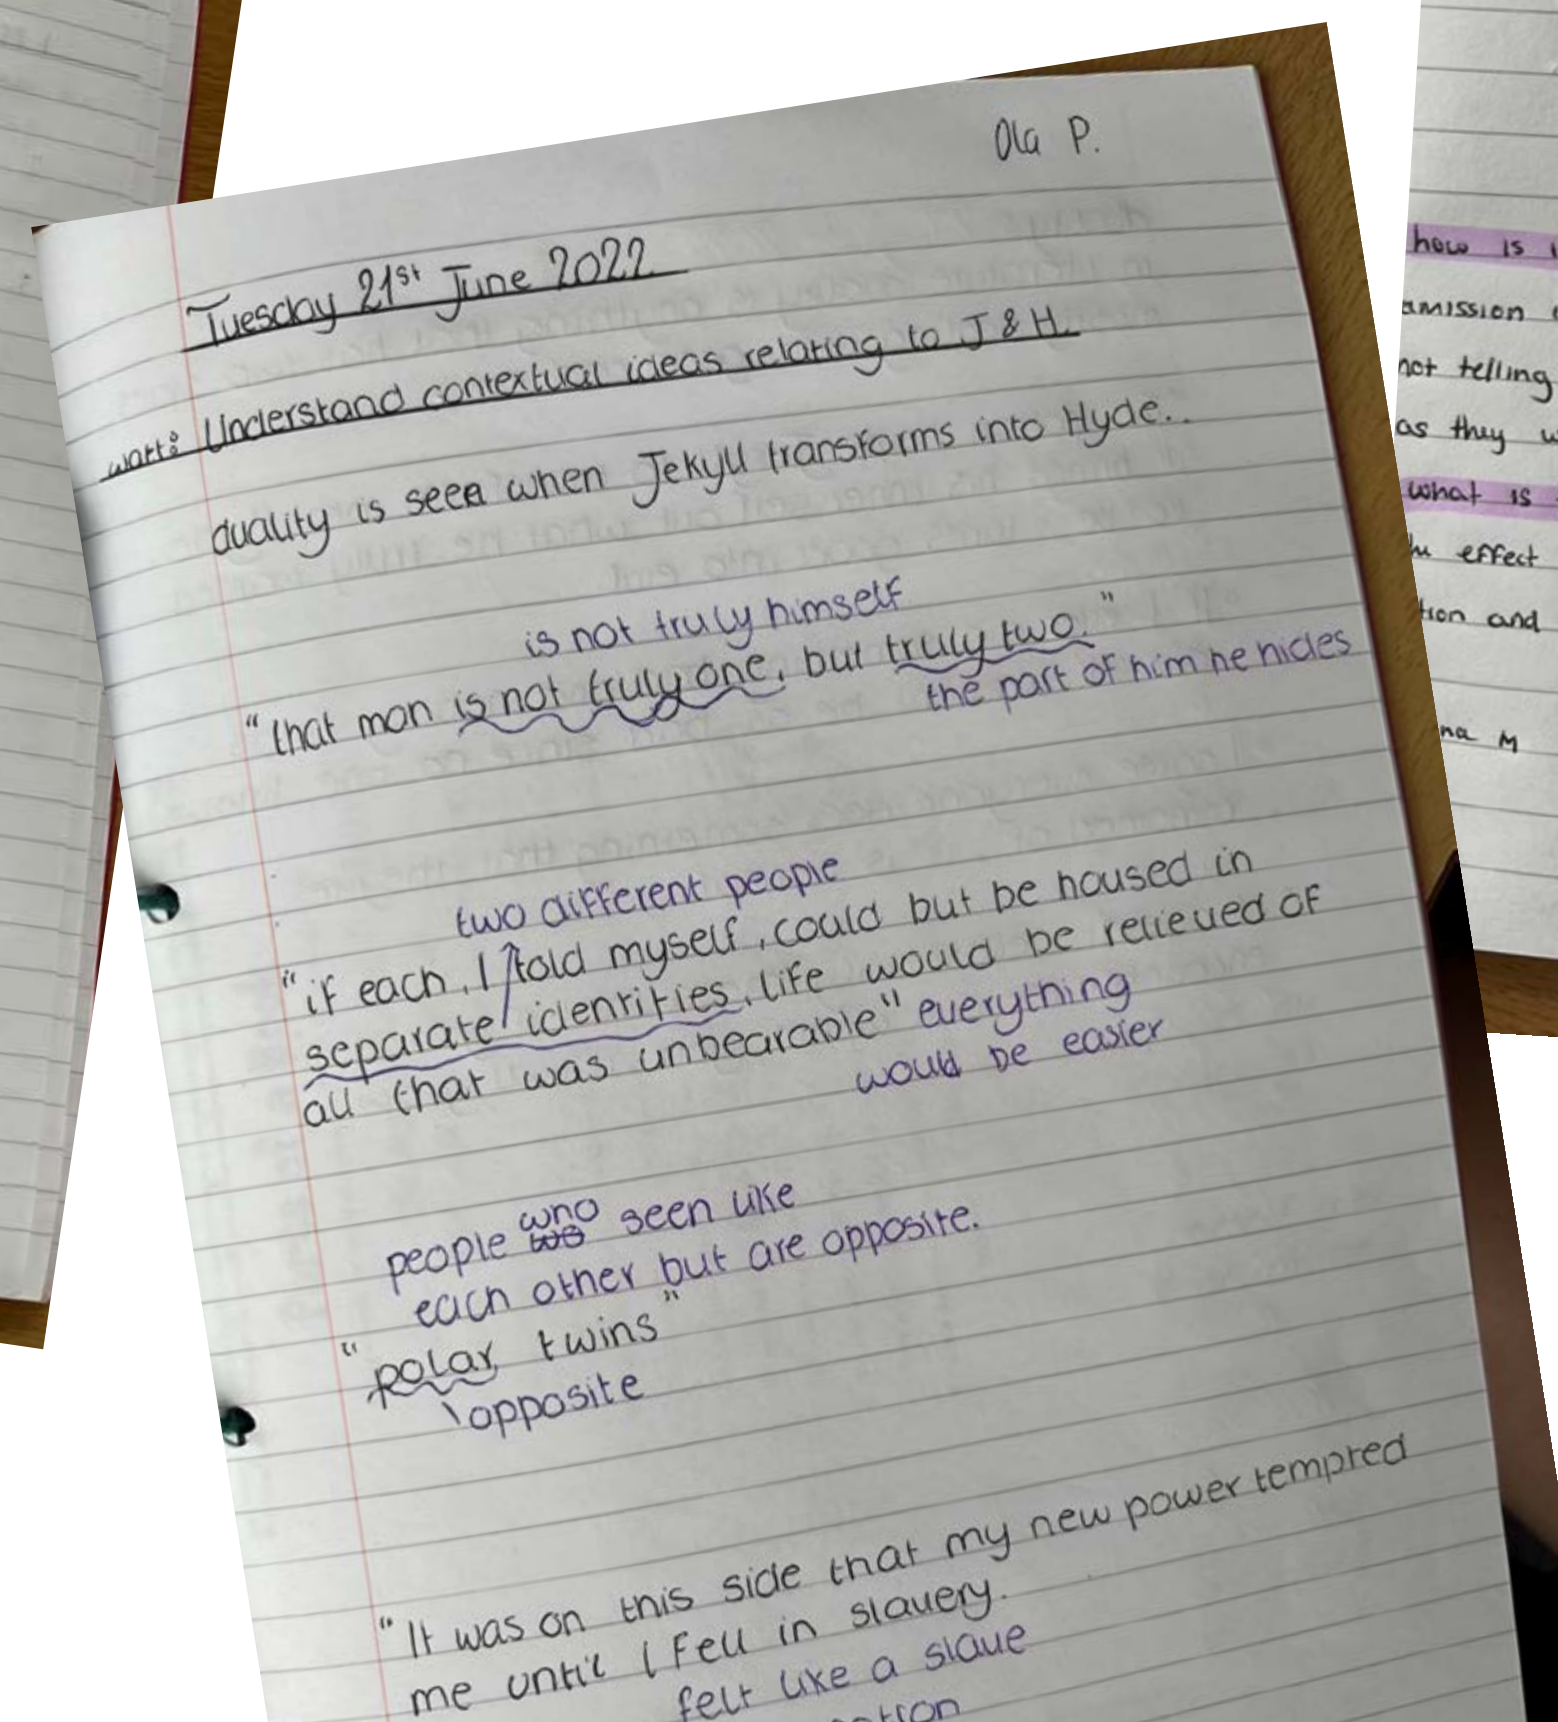 Ola P.
Tuesday 21st June 2022
WALT: Understand contextual ideas relating to J & H.
duality is seen when Jekyll transforms into Hyde..
is not truly himself
"that man is not truly one, but truly two."
the part of him he hides
two different people
"if each, I told myself, could but be housed in
separate identities, life would be relieved of
all that was unbearable" everything
would be easier
people who seen like
each other but are opposite.
"polar twins"
opposite
"It was on this side that my new power tempted
me until I fell in slavery.
felt like a slave
how is
amission
not telling
as they
what is
effect
tion and
na M